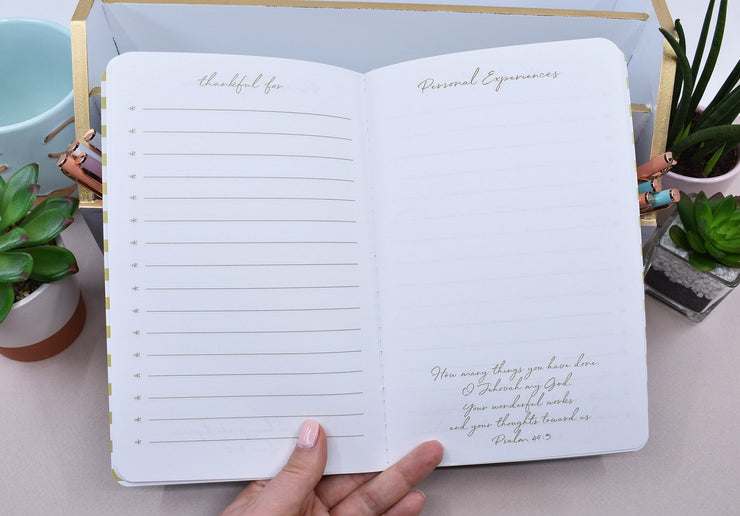 thankful for
Personal Experiences
How many things you have done
O Jehovah my God,
Your wonderful works
and your thoughts toward us
Psalm 40:5